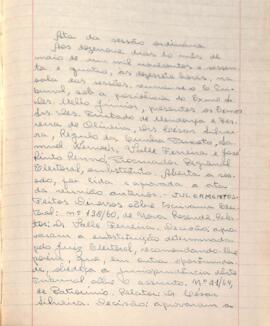 Ata da sessão ordinária
Aos dezenove dias do mês de
maio de um mil novecentos e sessen-
ta e quatro, às dezesseis horas, na
sala das sessões, reuniu-se o Tri-
bunal, sob a presidência do Exmo. Sr.
Des. Mello Júnior, presentes os Exmos
Srs. Des. Furtado de Mendonça e Fer-
reira de Oliveira, Drs. Cesar Silvei-
ra, Régulo da Cunha Peixoto,
Valle Ferreira e José
Pinto Procurador Regional
Eleitoral, substituto. Aberta a ses-
são, foi lida e aprovada a ata
da reunião anterior. JULGAMENTOS:
Feitos Diversos sobre Escrivania Elei-
toral: nº 138/60, de Nova Resende, Rela-
tor: Dr. Valle Ferreira. Decisão: apro-
varam a substituição determinada
pelo Juiz Eleitoral, recomendando-lhe
porém, que, em outra oportunida-
de, obedeça a jurisprudência deste
Tribunal sobre o assunto. Nº 41/64,
de Relator: Dr. Cesar
Silveira. Decisão: aprovaram as